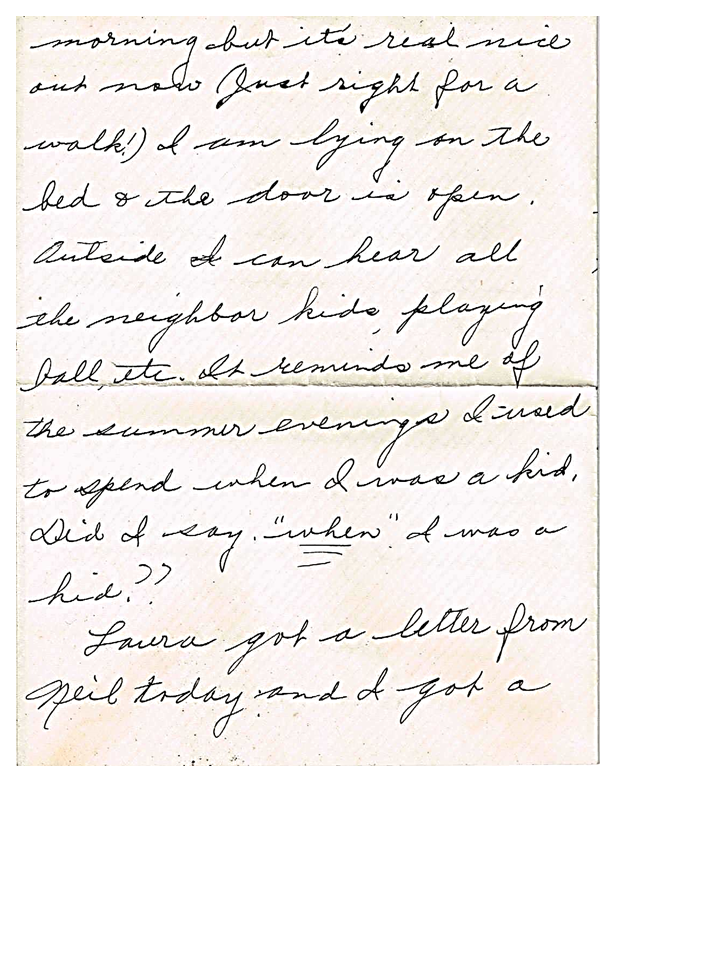 morning but it's real nice
out now (Just right for a
walk!) I am lying on the
bed & the door is open.
Outside I can hear all
the neighbor kids, playing
ball, etc. It reminds me of
the summer evenings I used
to spend when I was a kid.
Did I say. "when" I was a
kid.??
Laura got a letter from
Neil today and I got a